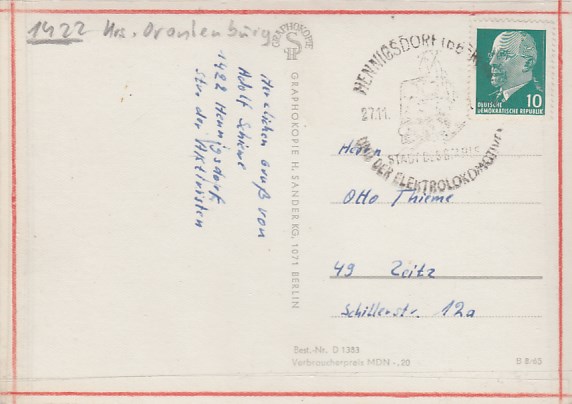 1422 Krs. Oranienburg
Herzlichen Gruß von
Adolf
1422 Hennigsdorf
Str. der Aktivisten
GRAPHOKOPIE
GRAPHOKOPIE H. SANDER KG, 1071 BERLIN
HENNIGSDORF (BERLIN)
27.11.
STADT DES STAHLS
UND DER ELEKTROLOKOMOTIVEN
DEUTSCHE
DEMOKRATISCHE REPUBLIK
10
Herrn
Otto Thieme
49 Zeitz
Schillerstr. 12a
Best.-Nr. D 1383
Verbraucherpreis MDN -.20
B 8/65